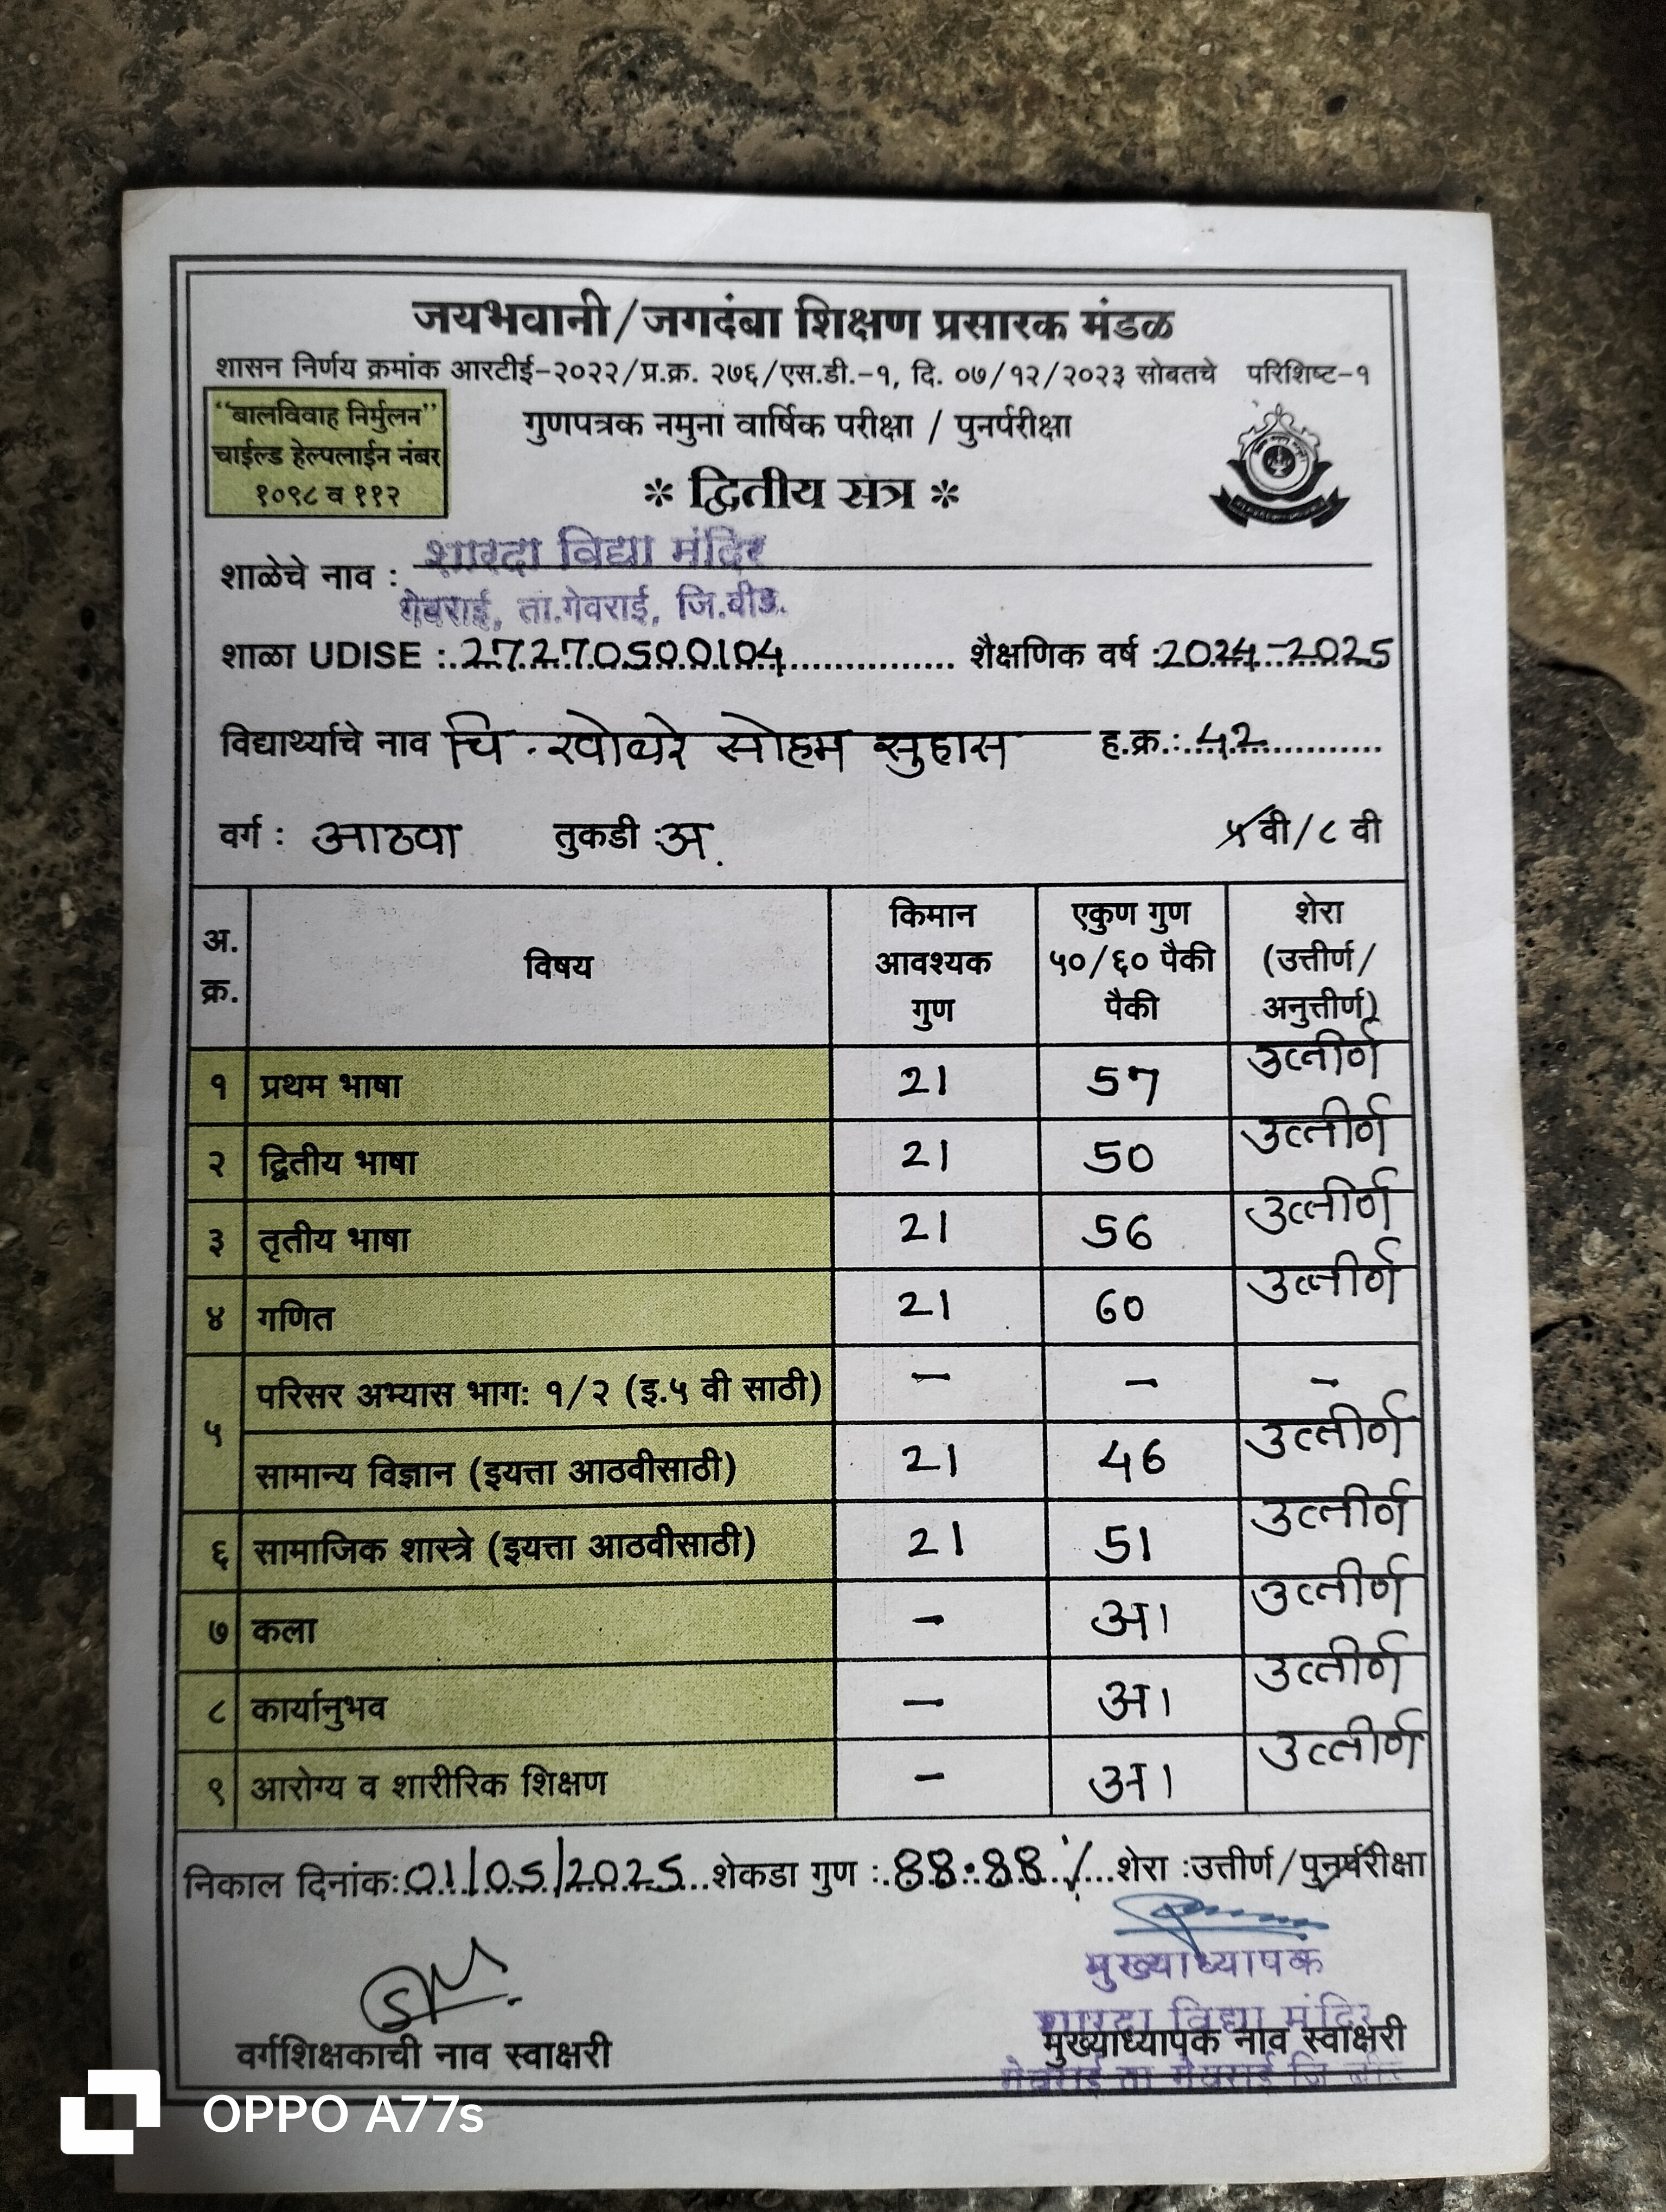 जयभवानी/जगदंबा शिक्षण प्रसारक मंडळ
शासन निर्णय क्रमांक आरटीई-२०२२/प्र.क्र. २७६/एस.डी.-१, दि. ०७/१२/२०२३ सोबतचे परिशिष्ट-१
"बालविवाह निर्मुलन"
चाईल्ड हेल्पलाईन नंबर
१०९८ व ११२
गुणपत्रक नमुना वार्षिक परीक्षा / पुनर्परीक्षा
* द्वितीय सत्र *
शाळेचे नाव : शारदा विद्या मंदिर
गेवराई, ता.गेवराई, जि.बीड.
शाळा UDISE : 27270500104 शैक्षणिक वर्ष : 2024-2025
विद्यार्थ्याचे नाव चि. खोबरे सोहम सुहास ह.क्र.: 42
वर्ग : आठवा तुकडी : अ. ५ वी/८ वी
अ. क्र. विषय किमान आवश्यक गुण एकुण गुण ५०/६० पैकी पैकी शेरा (उत्तीर्ण/ अनुत्तीर्ण)
१ प्रथम भाषा 21 57 उत्तीर्ण
२ द्वितीय भाषा 21 50 उत्तीर्ण
३ तृतीय भाषा 21 56 उत्तीर्ण
४ गणित 21 60 उत्तीर्ण
५ परिसर अभ्यास भाग: १/२ (इ.५ वी साठी) - - -
सामान्य विज्ञान (इयत्ता आठवीसाठी) 21 46 उत्तीर्ण
६ सामाजिक शास्त्रे (इयत्ता आठवीसाठी) 21 51 उत्तीर्ण
७ कला - अ1 उत्तीर्ण
८ कार्यानुभव - अ1 उत्तीर्ण
९ आरोग्य व शारीरिक शिक्षण - अ1 उत्तीर्ण
निकाल दिनांक: 01/05/2025 शेकडा गुण : 88.88 % शेरा : उत्तीर्ण/पुनर्परीक्षा
मुख्याध्यापक
शारदा विद्या मंदिर
वर्गशिक्षकाची नाव स्वाक्षरी मुख्याध्यापक नाव स्वाक्षरी
गेवराई ता गेवराई जि
OPPO A77s